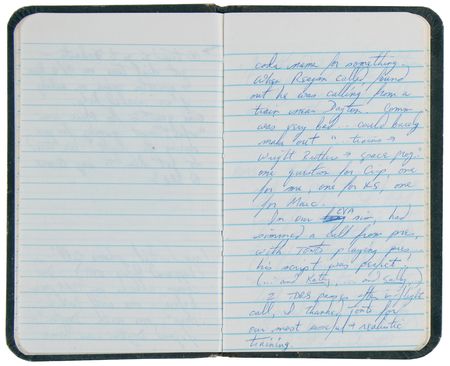 code name for something.
When Reagan called found
out he was calling from a
train near Dayton. Comm
was very bad... could barely
make out "trains →
Wright Brother → space prog."
one question for Crip, one
for me, one for KS, one
for Marc.
In our EVA sim, had
simmed a call from pres,
with Tonto playing pres...
his script was perfect,
(... and Kathy, ... and Sally,)
2 TDRS passes after
call, I thanked Tonto for
our most useful + realistic
training.